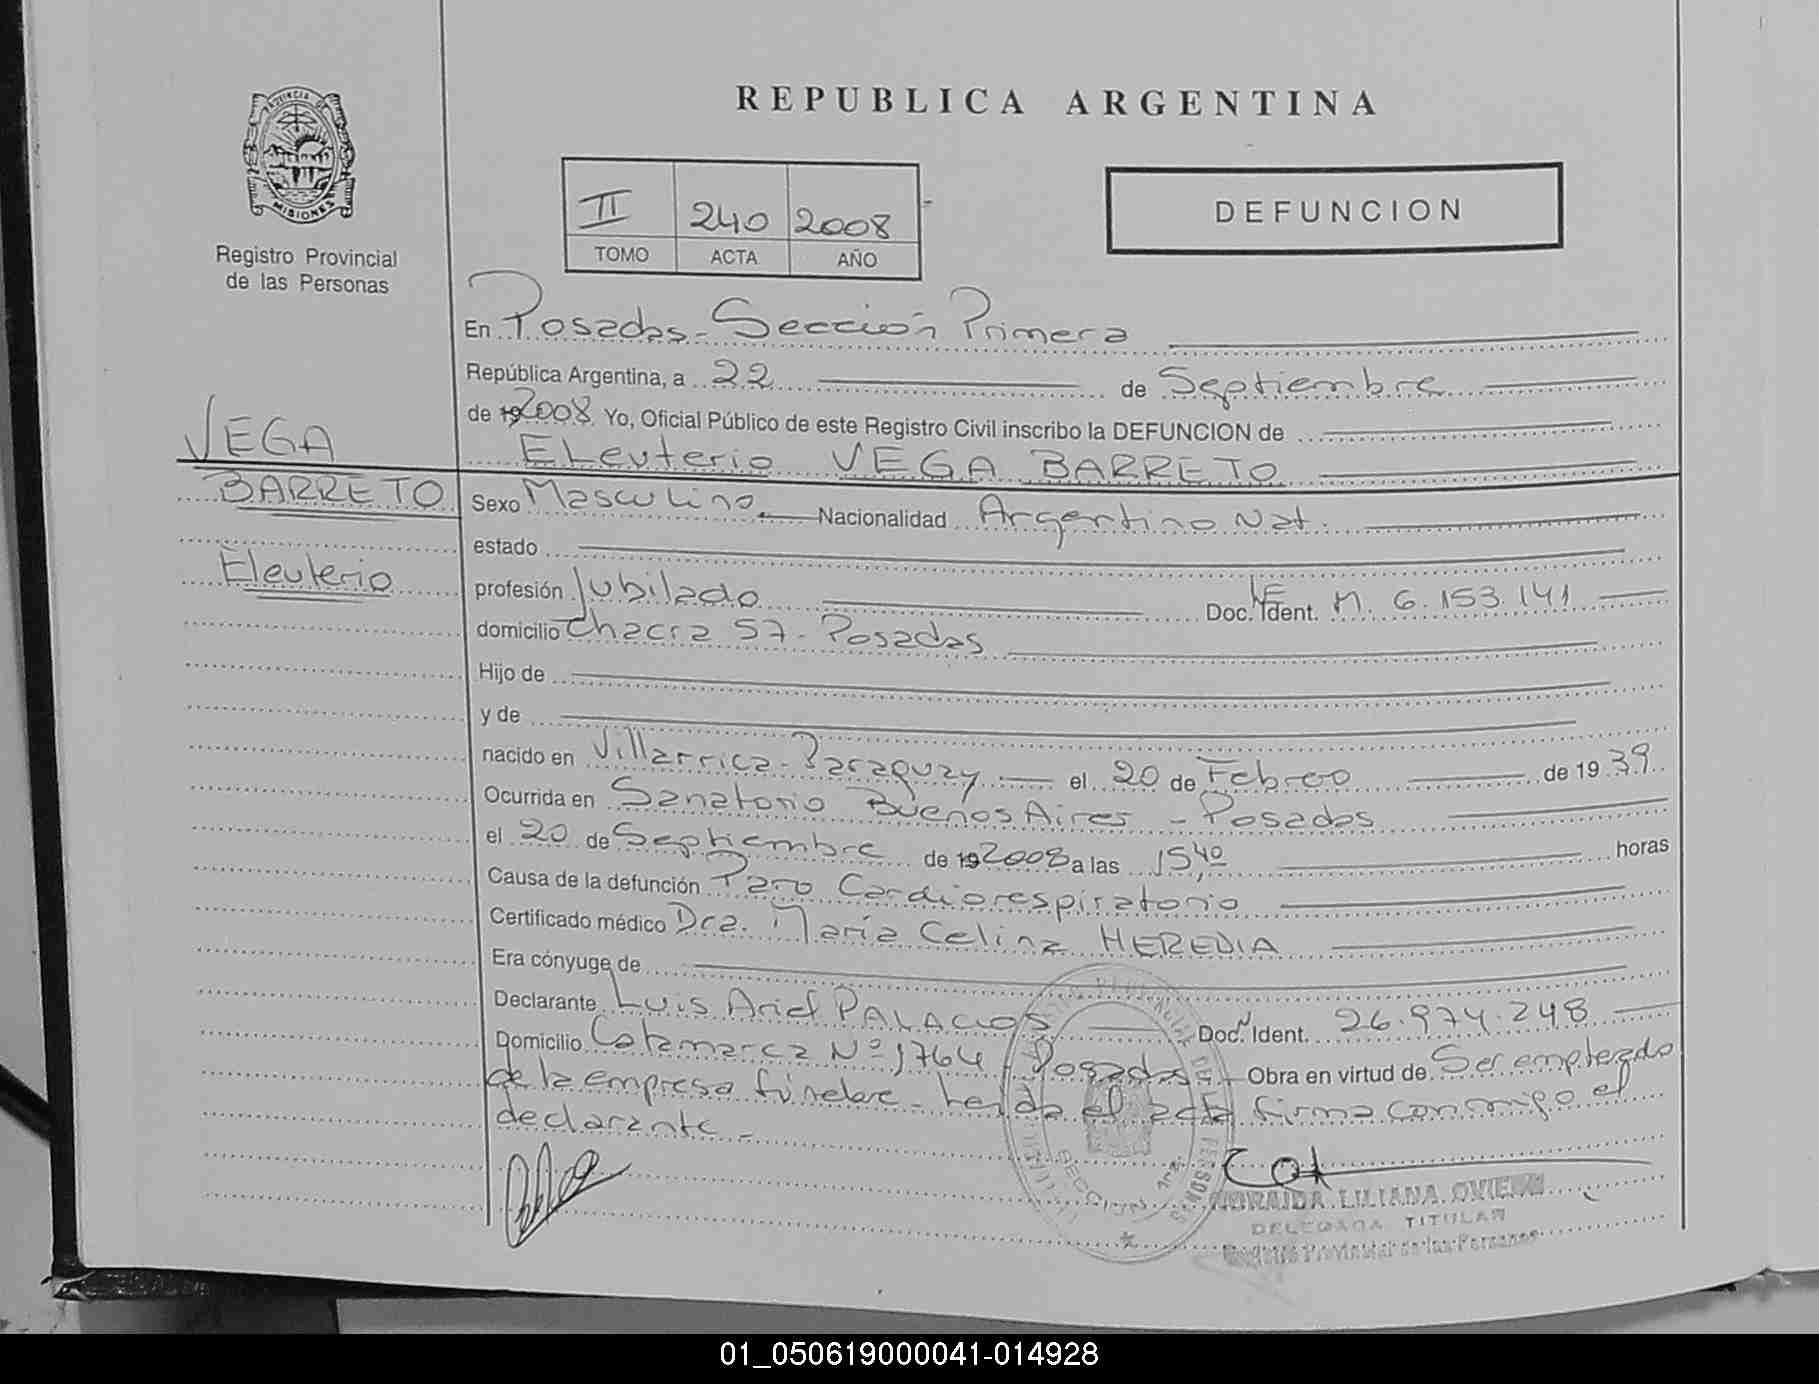 REPUBLICA ARGENTINA
PROVINCIA DE
MISIONES
Registro Provincial
de las Personas
II 240 2008
TOMO ACTA AÑO
DEFUNCION
VEGA
BARRETO
Eleuterio
En Posadas - Sección Primera
República Argentina, a 22 de Septiembre
de 19 2008 Yo, Oficial Público de este Registro Civil inscribo la DEFUNCION de
Eleuterio VEGA BARRETO
Sexo Masculino Nacionalidad Argentino Nat.
estado
profesión Jubilado Doc. Ident. LE M. 6.153.141
domicilio Chacra 57 - Posadas
Hijo de
y de
nacido en Villarrica - Paraguay el 20 de Febreo de 19 39
Ocurrida en Sanatorio Buenos Aires - Posadas
el 20 de Septiembre de 19 2008 a las 15,40 horas
Causa de la defunción Paro Cardiorespiratorio
Certificado médico Dra. María Celina HEREDIA
Era cónyuge de
Declarante Luis Ariel PALACIOS Doc. Ident. 26.974.248
Domicilio Catamarca Nº 1764 Posadas - Obra en virtud de Ser empleado
de la empresa fúnebre - Leida el acta firma conmigo el
declarante -
LILIANA OVIEDO
DELEGADA TITULAR
Registro Provincial de las Personas
01_050619000041-014928